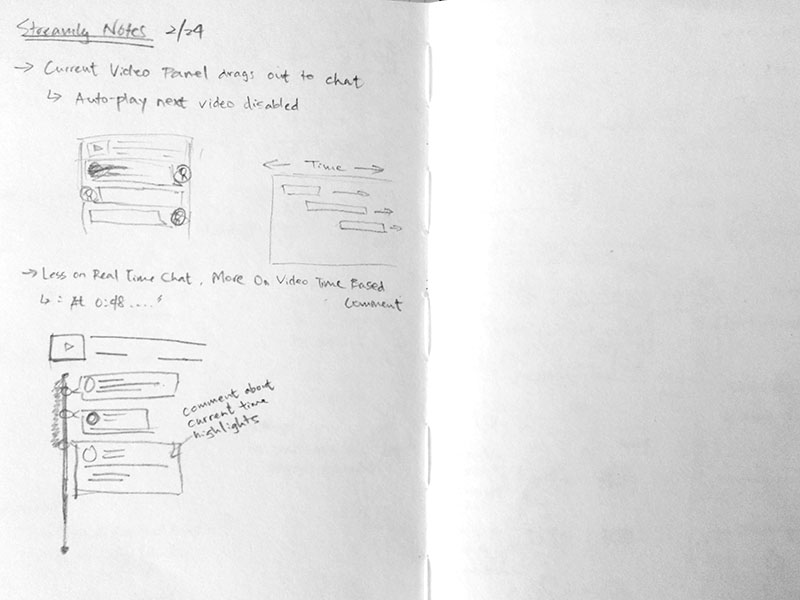 Streamly Notes 2/24
→ Current Video Panel drags out to chat
↳ Auto-play next video disabled
← Time →
→ Less on Real Time Chat, More On Video Time Based
Comment
↳ : At 0:48 ....
comment about
current time
highlights